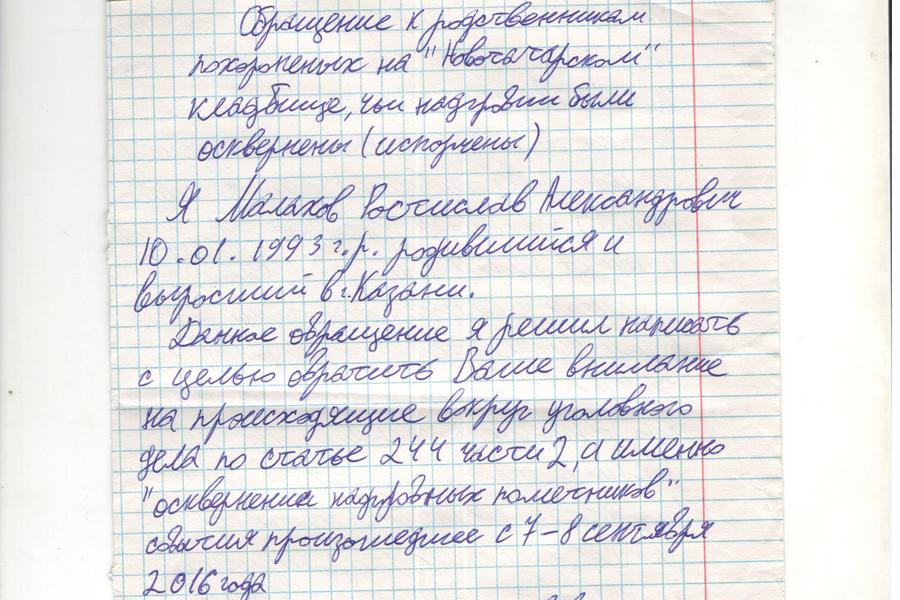 Обращение к родственникам
похороненых на "Новотатарском"
кладбище, чьи надгробия были
осквернены (испорчены)
Я Малахов Ростислав Александрович
10.01.1993 г.р. родившийся и
выросший в г.Казани.
Данное обращение я решил написать
с целью обратить Ваше внимание
на происходящие вокруг уголовного
дела по статье 244 части 2, а именно
"осквернении надгробных пометников"
события произошедшее с 7-8 сентября
2016 года